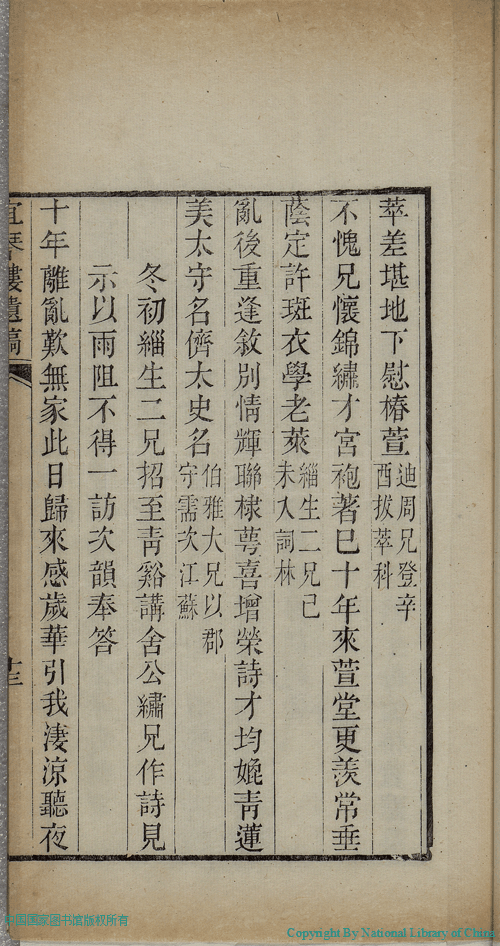 萃差堪地下慰椿萱迪周兄登辛
酉拔萃科
不愧兄懷錦繡才宮袍著已十年來萱堂更羨常垂
蔭定許斑衣學老萊緇生二兄己
未入詞林
亂後重逢敘別情輝聯棣萼喜增榮詩才均媲靑蓮
美太守名儕太史名伯雅大兄以郡
守需次江蘇
冬初緇生二兄招至靑谿講舍公繡兄作詩見
示以雨阻不得一訪次韻奉答
十年離亂歎無家此日歸來感歲華引我淒涼聽夜
宜琴樓遺稿
十三
中国国家图书馆版权所有
Copyright By National Library of China.